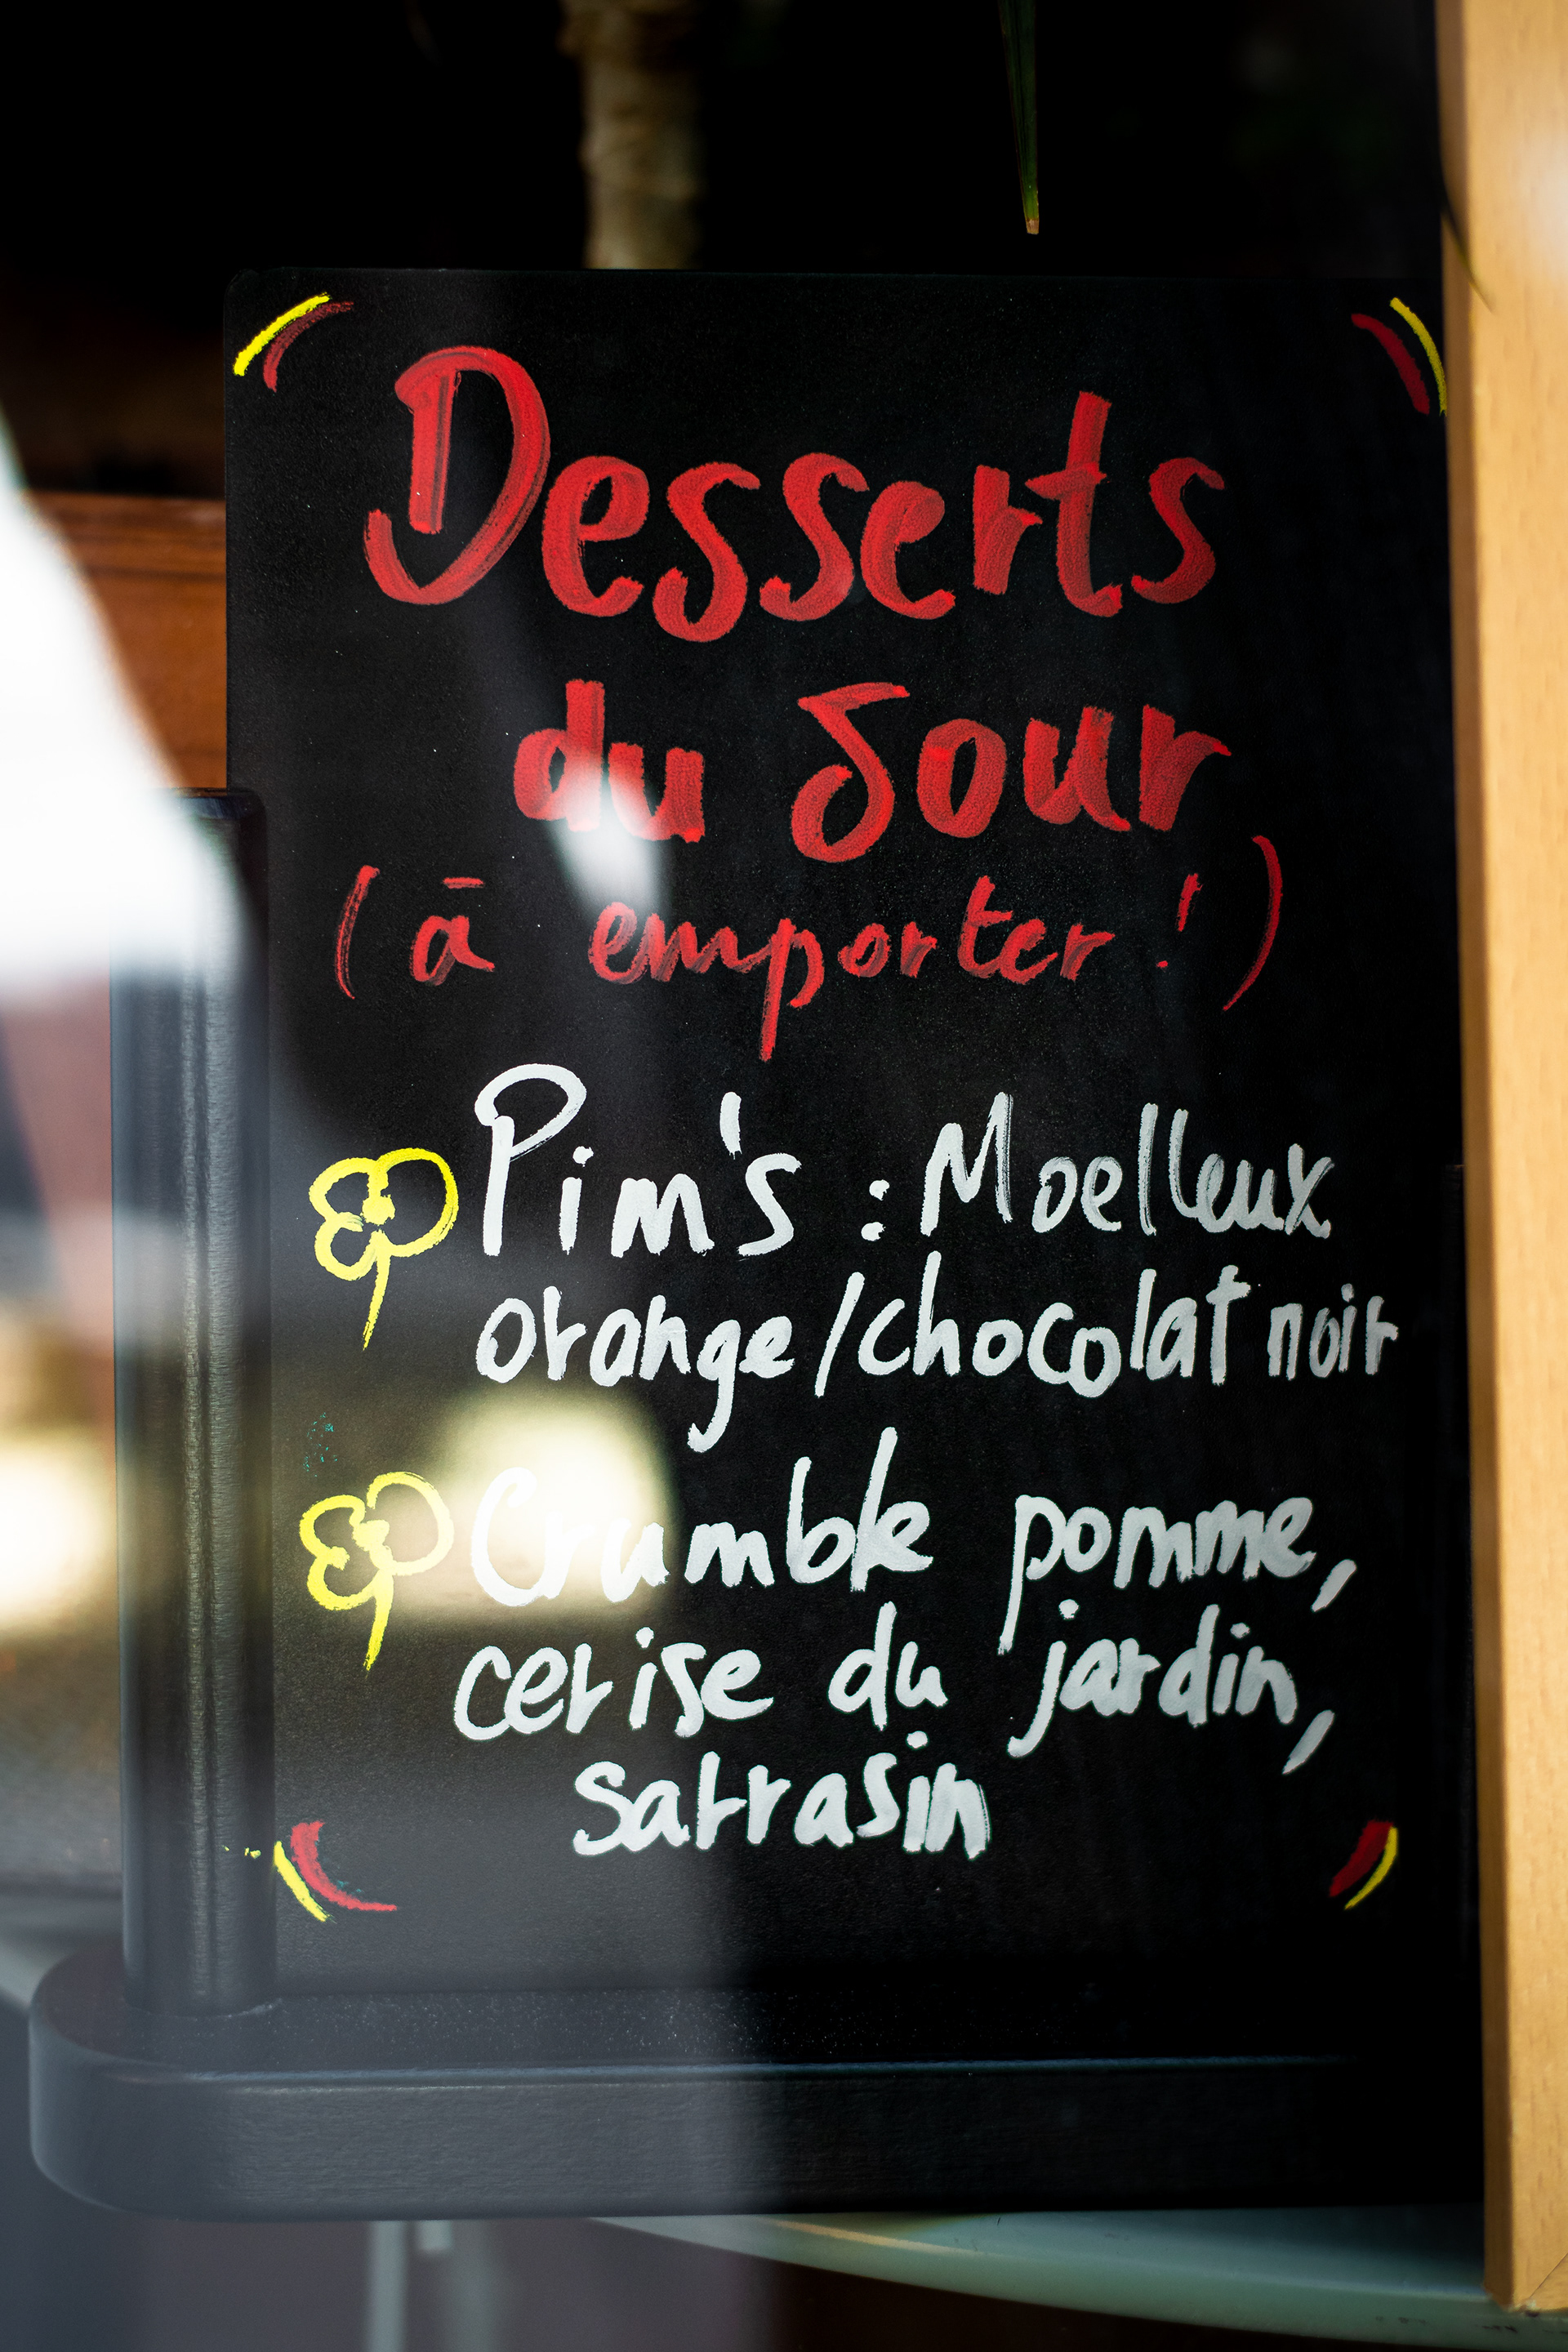 Desserts
du Jour
(à emporter !)
Pim's : Moelleux
orange/chocolat noir
Crumble pomme,
cerise du jardin,
sarrasin